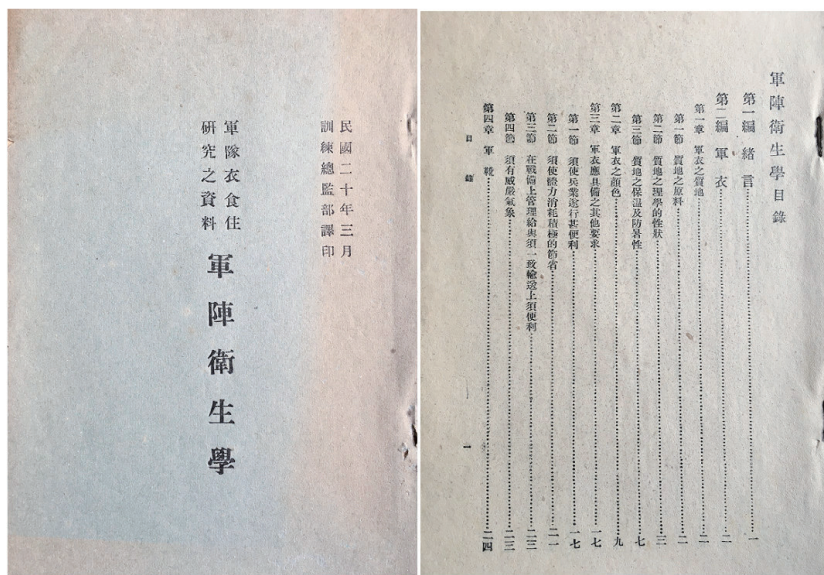 民國二十年三月
訓練總監部譯印
軍隊衣食住
研究之資料
軍陣衛生學
軍陣衛生學目錄
第一編 緒言………一
第二編 軍衣………二
第一章 軍衣之質地………二
第一節 質地之原料………二
第二節 質地之理學的性狀………三
第三節 質地之保温及防暑性………七
第二章 軍衣之顏色………九
第三章 軍衣應具備之其他要求………一七
第一節 須使兵業遂行甚便利………一七
第二節 須使體力消耗積極的節省………二一
第三節 在戰備上管理給與須一致輸送上須便利………二三
第四節 須有威嚴氣象………二三
第四章 軍靴………二四
目錄
一